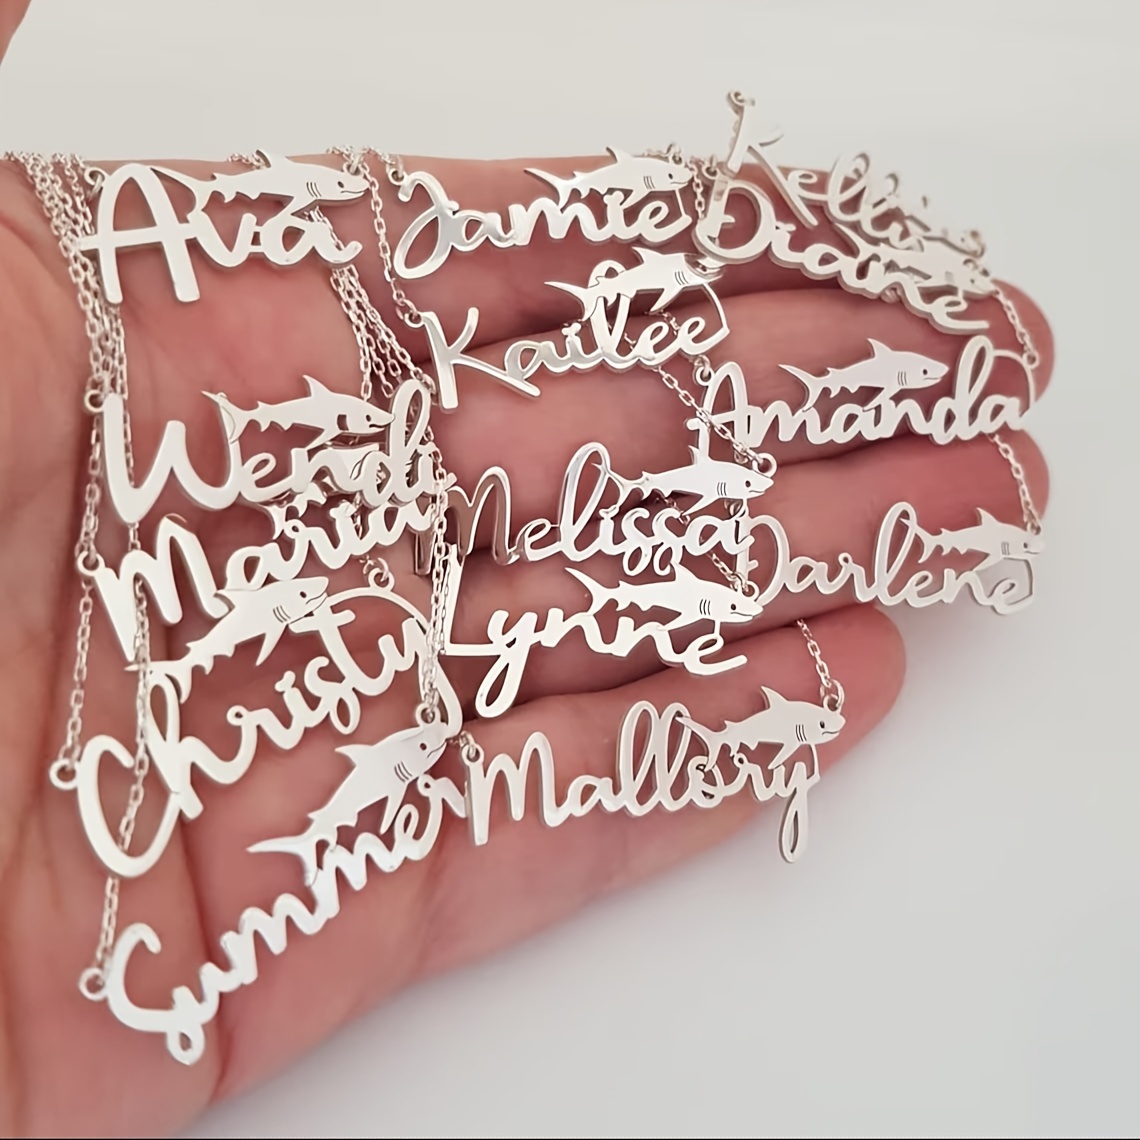 Ava
Jamie
Diane
Kailee
Amanda
Wendi
Melissa
Maria
Darlene
Lynne
Christy
Mallory
Summer